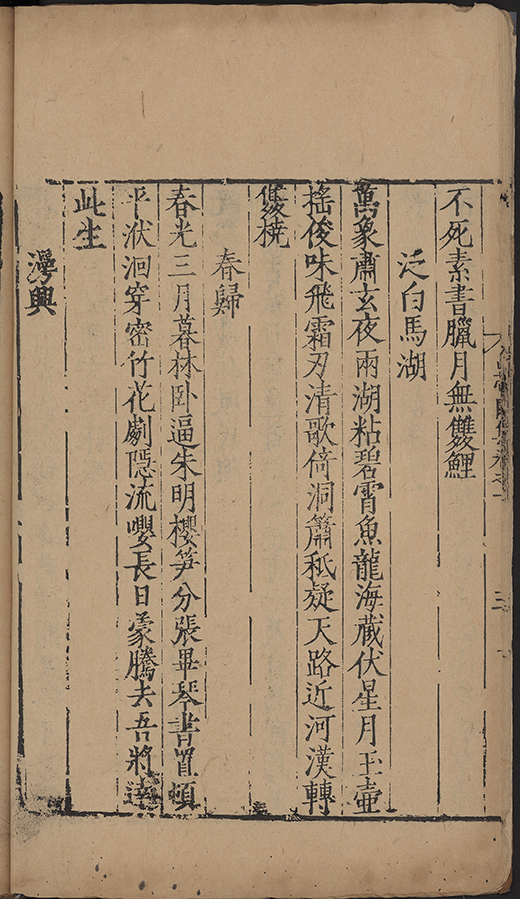 不死素書臘月無雙鯉
泛白馬湖
萬象肅玄夜兩湖粘碧霄魚龍海藏伏星月玉壺
搖俊味飛霜刃清歌倚洞簫秪疑天路近河漢轉
雙橈
春歸
春光三月暮林卧逼朱明櫻笋分張畢琴書置頓
平洑洄穿密竹花劇隱流嚶長日豪騰去吾將達
此生
漫興
三